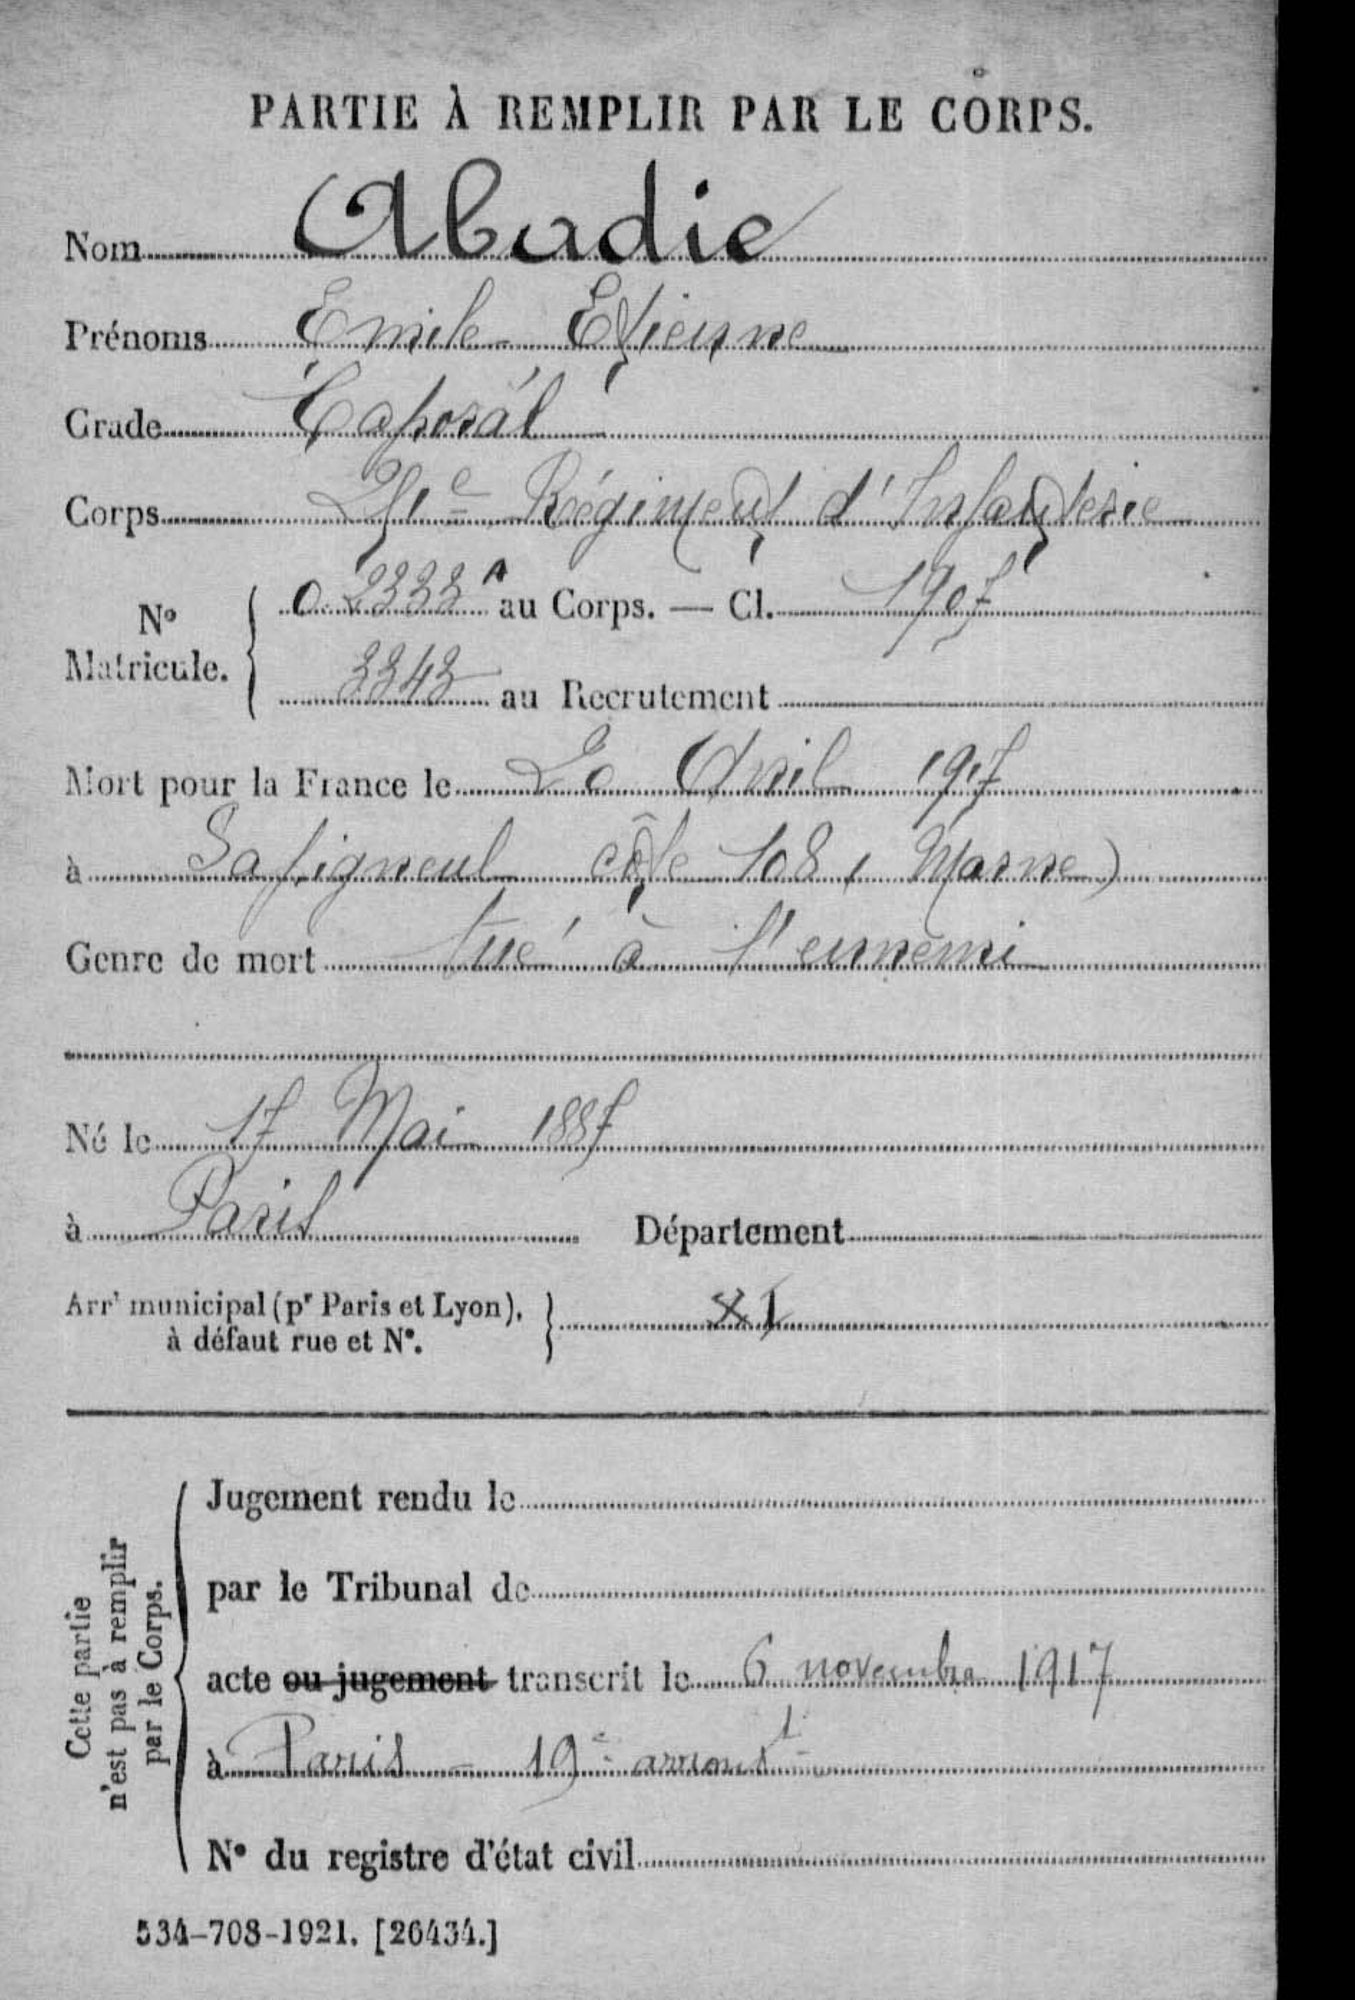 PARTIE À REMPLIR PAR LE CORPS.
Nom Abadie
Prénoms Emile Etienne
Grade Caporal
Corps 251e Régiment d'Infanterie
No Matricule. { 0.2333 A au Corps. — Cl. 1907
3343 au Recrutement
Mort pour la France le 20 Avril 1917
à Sapigneul côte 108 (Marne)
Genre de mort tué à l'ennemi
Né le 17 Mai 1887
à Paris Département
Arrt municipal (pr Paris et Lyon), à défaut rue et No. } XI
Cette partie n'est pas à remplir par le Corps.
Jugement rendu le
par le Tribunal de
acte ou jugement transcrit le 6 novembre 1917
à Paris - 19e arront -
No du registre d'état civil
534-708-1921. [26434.]